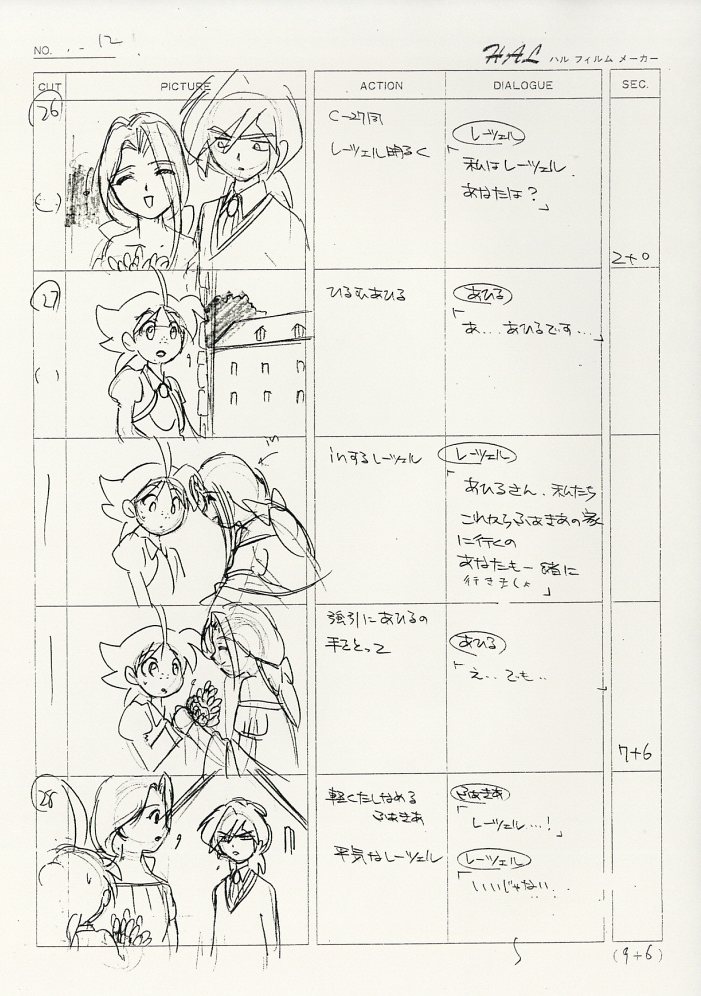 NO. -12
HAL ハル フィルム メーカー
CUT PICTURE ACTION DIALOGUE SEC.
26
C-27同
レーツェル明るく
レーツェル
「私はレーツェル
あなたは？」
2+0
27
ひるむあひる
あひる
「あ...あひるです...」
in
inするレーツェル
レーツェル
「あひるさん、私たち
これからふぁきあの家
に行くの
あなたも一緒に
行きましょ」
強引にあひるの
手をとって
あひる
「え..でも..」
7+6
28
軽くたしなめる
ふぁきあ
ふぁきあ
「レーツェル...!」
平気なレーツェル
レーツェル
「いいじゃない...
(9+6)